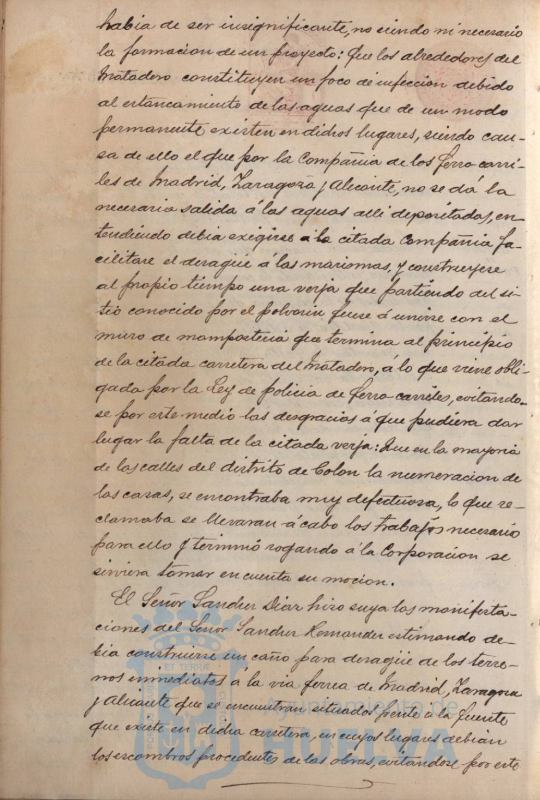 habia de ser insignificante, no siendo ni necesario
la formacion de un proyecto: Que los alrededores del
Matadero constituyen un foco de infeccion debido
al estancamiento de las aguas que de un modo
permanente existen en dichos lugares, siendo cau-
sa de ello el que por la Compañia de los ferro-carri-
les de Madrid, Zaragoza y Alicante, no se dá la
necesaria salida á las aguas alli depositadas, en-
tendiendo debia exigirse a la citada Compañia fa-
cilitare el desagüe á las marismas, y construyere
al propio tiempo una verja que partiendo del si-
tio conocido por el polvorin fuese á unirse con el
muro de mamposteria que termina al principio
de la citada carretera del Matadero, á lo que viene obli-
gada por la Ley de policia de ferro-carriles, evitando-
se por este medio las desgracias á que pudiera dar
lugar la falta de la citada verja: Que en la mayoria
de las calles del distrito de Colon la numeracion de
las casas, se encontraba muy defectuosa, lo que re-
clamaba se llevaran á cabo los trabajos necesario
para ello y terminó rogando á la Corporacion se
sirviera tomar en cuenta su mocion.
El Señor Sanchez Diaz hizo suya las manifesta-
ciones del Señor Sanchez Hernandez estimando de-
bia construirse un caño para desagüe de los terre-
nos inmediatos á la via ferrea de Madrid, Zaragoza
y Alicante que se encuentran situados frente á la fuente
que existe en dicha carretera, en cuyos lugares debian
los escombros procedentes de las obras, evitándose por este
ET TERRÆ
Ayuntamiento de
HUELVA